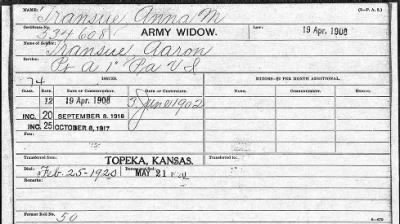 NAME: Transue Anna M (3-P. A. S.)
Certificate No. 534608 ARMY WIDOW. 19 Apr. 1908
Name of Soldier: Transue Aaron
Service: Pvt A 1" Pa V I
74 ISSUES. MINORS—$2 PER MONTH ADDITIONAL.
CLASS. RATE. DATE OF COMMENCEMENT. DATE OF CERTIFICATE.
12 19 Apr. 1908 3 June 1902
INC. 20 SEPTEMBER 8, 1916
INC. 25 OCTOBER 6, 1917
Transferred from TOPEKA, KANSAS. Transferred to
Died: Feb. 25-1920 MAY 21
Remarks:
Former Roll No. 50